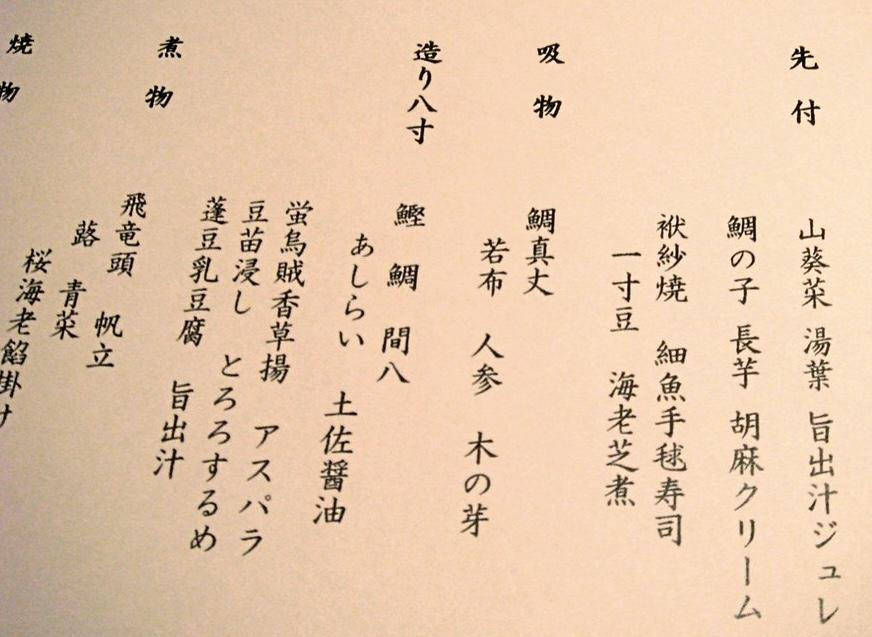 先付
山葵菜 湯葉 旨出汁ジュレ
鯛の子 長芋 胡麻クリーム
袱紗焼 細魚手毬寿司
一寸豆 海老芝煮
吸物
鯛真丈
若布 人参 木の芽
造り八寸
鰹 鯛 間八
あしらい 土佐醤油
蛍烏賊香草揚 アスパラ
豆苗浸し とろろするめ
蓬豆乳豆腐 旨出汁
煮物
飛竜頭 帆立
蕗 青菜
桜海老餡掛け
焼物